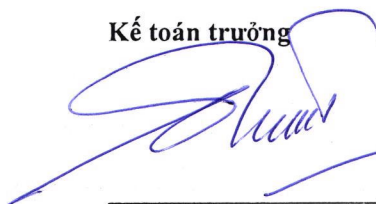 Kế toán trưởng